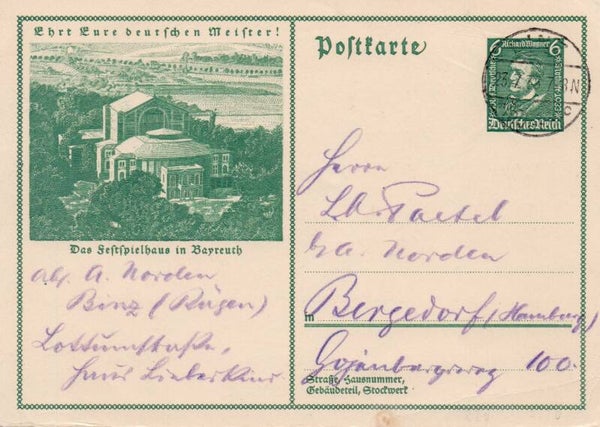 Ehrt Eure deutschen Meister!
Das Festspielhaus in Bayreuth
Abs. A. Norden
Binz (Rügen)
Lottumstraße,
Haus Lieberkind
Postkarte
6 Richard Wagner 6
Deutsches Reich
Herrn
Paetel
A. Norden
Bergedorf (Hamburg)
Gojenbergsweg 100.
Straße, Hausnummer,
Gebäudeteil, Stockwerk